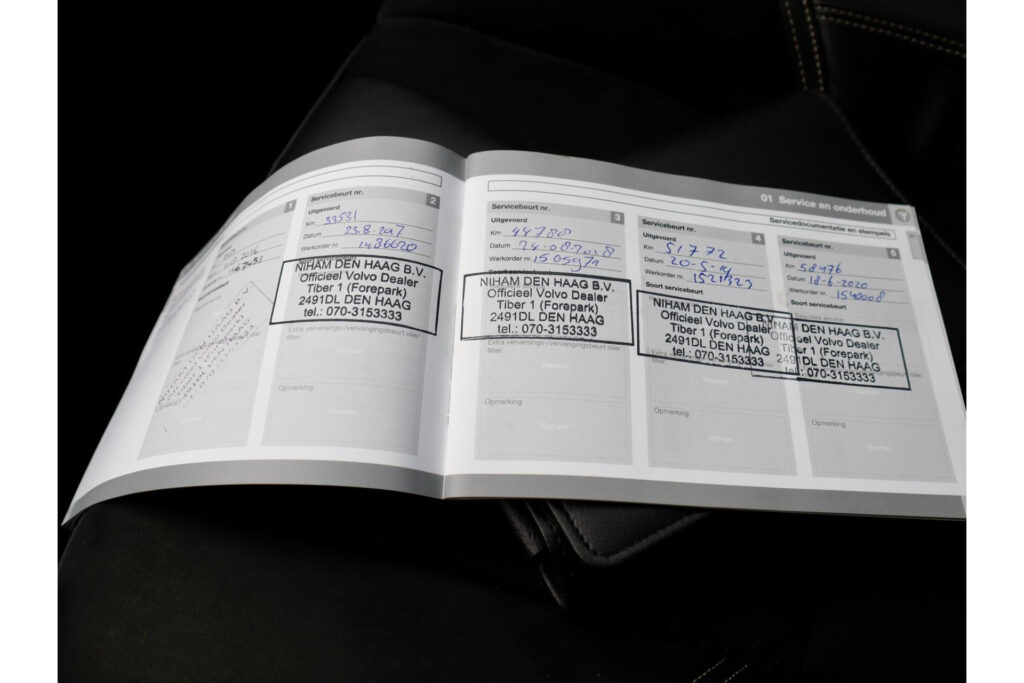 01 Service en onderhoud
Servicedocumentatie en stempels
1
2016
Servicebeurt nr. 2
Uitgevoerd
Km 33531
Datum 23.8-2017
Werkorder nr. 1486620
NIHAM DEN HAAG B.V.
Officieel Volvo Dealer
Tiber 1 (Forepark)
2491DL DEN HAAG
tel.: 070-3153333
Extra verversings-/vervangingsbeurt olie/
filter:
Stempel
Opmerking
Stempel
Servicebeurt nr. 3
Uitgevoerd
Km 44788
Datum 24-08-2018
Werkorder nr. 1505971
Soort servicebeurt
NIHAM DEN HAAG B.V.
Officieel Volvo Dealer
Tiber 1 (Forepark)
2491DL DEN HAAG
tel.: 070-3153333
Extra verversings-/vervangingsbeurt olie/
filter:
Stempel
Opmerking
Stempel
Servicebeurt nr. 4
Uitgevoerd
Km 51772
Datum 20-5-19
Werkorder nr. 1521323
Soort servicebeurt
NIHAM DEN HAAG B.V.
Officieel Volvo Dealer
Tiber 1 (Forepark)
2491DL DEN HAAG
tel.: 070-3153333
Stempel
Opmerking
Stempel
Servicebeurt nr. 5
Uitgevoerd
Km 58476
Datum 18-6-2020
Werkorder nr. 1540008
Soort servicebeurt
NIHAM DEN HAAG B.V.
Officieel Volvo Dealer
Tiber 1 (Forepark)
2491DL DEN HAAG
tel.: 070-3153333
Opmerking
Stempel